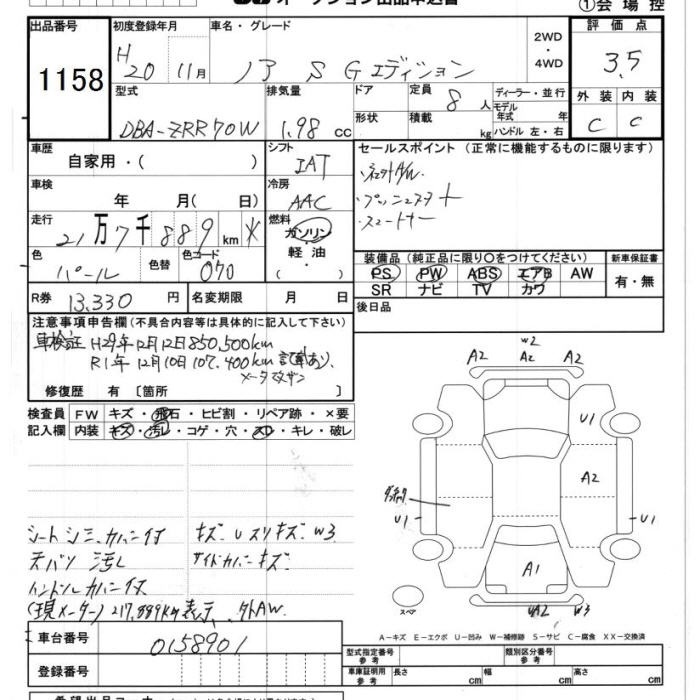 オークション出品申込書
①会場控
出品番号
1158
初度登録年月
H20 11月
車名・グレード
ノア S Gエディション
2WD
・
4WD
評価点
3.5
外装 内装
C C
型式
DBA-ZRR70W
排気量
1.98 cc
ドア
形状
定員 8 人
積載 kg
ディーラー・並行
モデル年式 年
ハンドル 左・右
車歴
自家用・( )
シフト
IAT
セールスポイント (正常に機能するものに限ります)
プッシュスタート
スマートキー
車検
年 月( 日)
冷房
AAC
走行
21万7千889km
燃料
ガソリン
軽油
( )
色
パール
色替
色コード
070
装備品 (純正品に限り○をつけてください)
PS PW ABS エアB AW
SR ナビ TV カワ
新車保証書
有・無
R券 13,330 円
名変期限 月 日
後日品
注意事項申告欄 (不具合内容等は具体的に記入して下さい)
車検証 H29年12月12日850,500km
R1年12月10日107,400km 記載あり、
メータ改ザン
修復歴 有 〔箇所 〕
検査員記入欄
FW キズ・飛石・ヒビ割・リペア跡・×要
内装 キズ・汚レ・コゲ・穴・スレ・キレ・破レ
W2
A2 A2
U1
A2
U1 U1
A1
A2 W3
スペア
シートシミ、カバー付 キズ U スリキズ W3
天バリ 汚レ サイドカバーキズ
ハンドルカバーキズ
(現メーター)217,889km表示、外AW.
A-キズ E-エクボ U-凹み W-補修跡 S-サビ C-腐食 XX-交換済
車台番号
0158901
登録番号
型式指定番号
参考
類別区分番号
参考
車庫証明用
参考
長さ cm 幅 cm 高さ cm